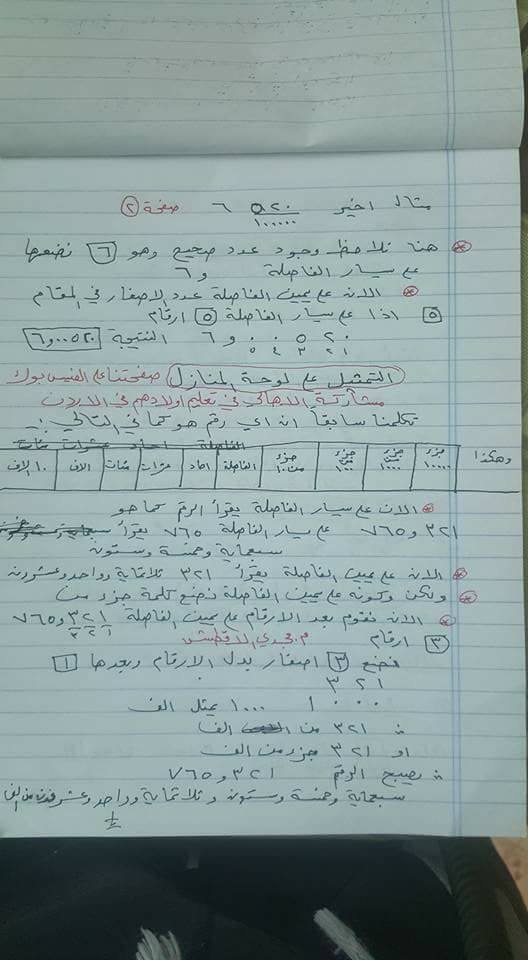 مثال اخير ٥٢٠/١٠٠٠٠٠ ٦ صفحة ٢
* هنا نلاحظ وجود عدد صحيح وهو ٦ نضعها
على يسار الفاصلة و٦
* الان على يمين الفاصلة عدد الاصفار في المقام
٥ اذا على يسار الفاصلة ٥ ارقام
٦ و ٠ ٠ ٥ ٢ ٠ النتيجة ٦و٠٠٥٢٠
٥ ٤ ٣ ٢ ١
التمثيل على لوحة المنازل صفحتنا على الفيس بوك
مشاركة الاهالي في تعليم اولادهم في الاردن
تكلمنا سابقاً ان اي رقم هو كما في التالي:-
الفاصلة احاد عشرات مئات
وهكذا جزء ١٠٠٠٠ جزء من ١٠٠٠ جزء من ١٠٠ جزء من ١٠ الفاصلة احاد عشرات مئات الاف ١٠ الاف
* الان على يسار الفاصلة يقرأ الرقم كما هو
٧٦٥و٣٢١ على يسار الفاصلة ٧٦٥ يقرأ
سبعماية وخمسة وستون
* الان على يمين الفاصلة يقرأ ٣٢١ ثلاثماية وواحد وعشرون
* ولكن وكونه على يمين الفاصلة نضع كلمة جزء من
* الان نقوم بعد الارقام على يمين الفاصلة ٧٦٥و٣٢١
٣ ٢ ١
٣ ارقام م. مجدي الاقطش
فنضع ٣ اصفار بدل الارقام وبعدها ١
٣ ٢ ١
١ ٠ ٠ ٠ ١٠٠٠ يمثل الف
∴ ٣٢١ من الف
او ٣٢١ جزء من الف
∴ يصبح الرقم ٧٦٥و٣٢١
سبعماية وخمسة وستون و ثلاثماية وواحد وعشرون من الف